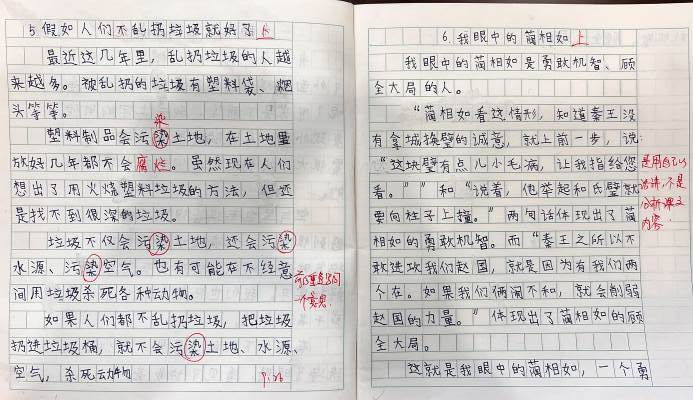 5.假如人们不乱扔垃圾就好了上
最近这几年里，乱扔垃圾的人越
来越多。被乱扔的垃圾有塑料袋、烟
头等等。
染
塑料制品会污染土地，在土地里
放好几年都不会腐烂。虽然现在人们
想出了用火烧塑料垃圾的方法，但还
是找不到很深的垃圾。
垃圾不仅会污染土地，还会污染
水源、污染空气。也有可能在不经意
间用垃圾杀死各种动物。
如果人们都不乱扔垃圾，把垃圾
扔进垃圾桶，就不会污染土地、水源、
空气，杀死动物
一个意思
6.我眼中的蔺相如上
我眼中的蔺相如是勇敢机智、顾
全大局的人。
“蔺相如看这情形，知道秦王没
有拿城换璧的诚意，就上前一步，说：
“这块璧有点儿小毛病，让我指给您
看。””和“说着，他举起和氏璧就
要向柱子上撞。”两句话体现出了蔺
相如的勇敢机智。而“秦王之所以不
敢进攻我们赵国，就是因为有我们两
个在。如果我们俩闹不和，就会削弱
赵国的力量。”体现出了蔺相如的顾
全大局。
这就是我眼中的蔺相如，一个勇
是用自己的
话讲，不是
分析课文
内容.